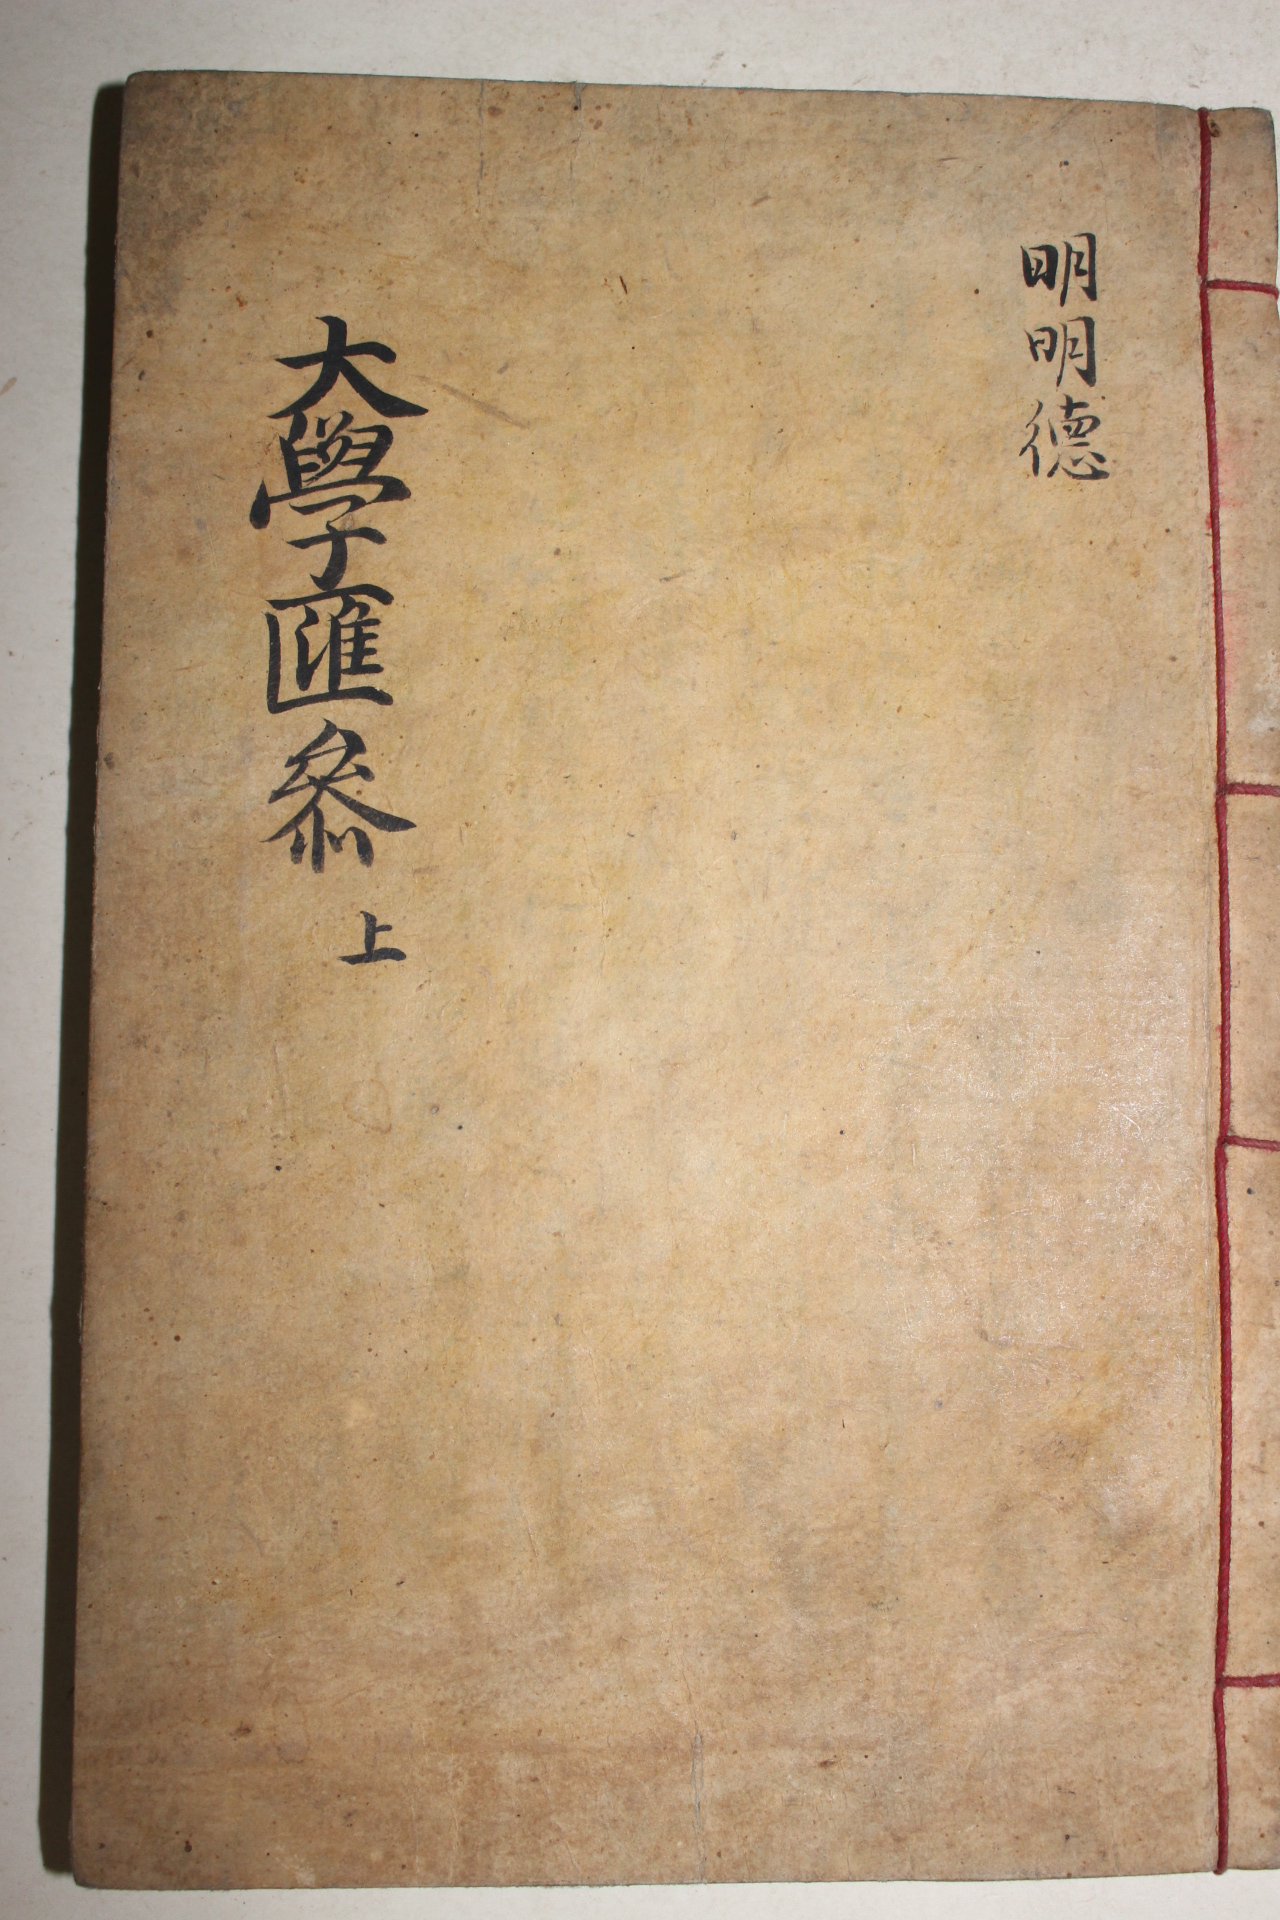 明明德
大學匯叅 上